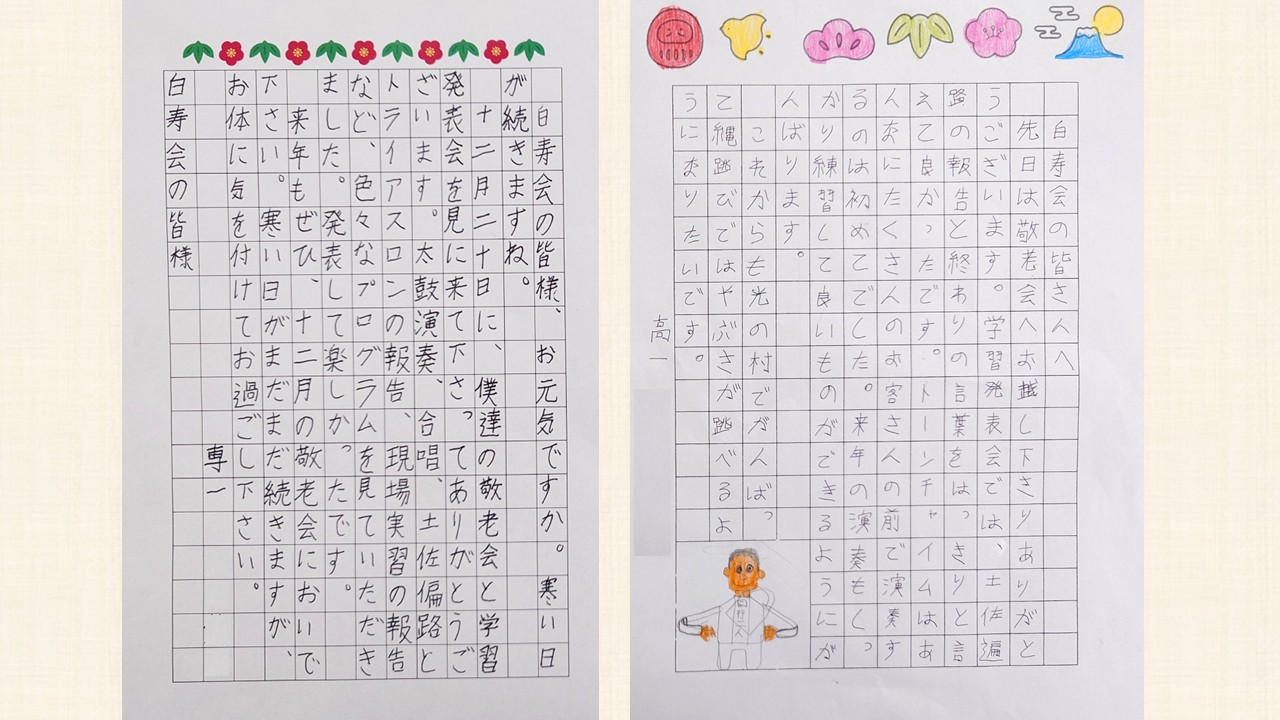 白寿会の皆様、お元気ですか。寒い日
が続きますね。
十二月二十日に、僕達の敬老会と学習
発表会を見に来て下さってありがとうご
ざいます。太鼓演奏、合唱、土佐偏路と
トライアスロンの報告、現場実習の報告
など、色々なプログラムを見ていただき
ました。発表して楽しかったです。
来年もぜひ、十二月の敬老会においで
下さい。寒い日がまだまだ続きますが、
お体に気を付けてお過ごし下さい。
専一
白寿会の皆様
白寿会の皆さんへ
先日は敬老会へお越し下さりありがと
うございます。学習発表会では、土佐遍
路の報告と終わりの言葉をはっきりと言
えて良かったです。トーンチャイムはあ
んなにたくさんのお客さんの前で演奏す
るのは初めてでした。来年の演奏もしっ
かり練習して良いものができるようにが
んばります。
これからも光の村でがんばっ
て縄跳びではやぶさが跳べるよ
うになりたいです。
高一